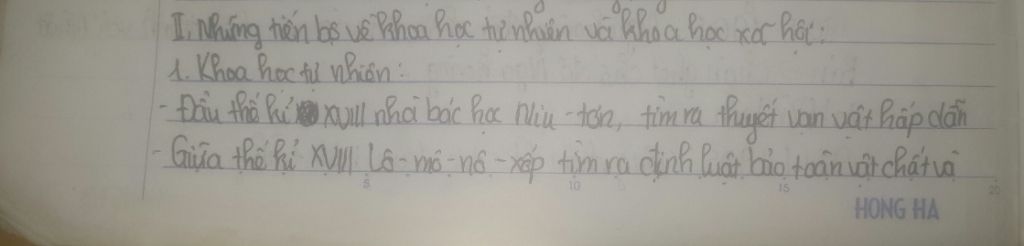 II. Những tiến bộ về khoa học tự nhiên và khoa học xã hội:
1. Khoa học tự nhiên:
- Đầu thế kỉ XVIII nhà bác học Niu-tơn, tìm ra thuyết vạn vật hấp dẫn
- Giữa thế kỉ XVIII Lô-mô-nô-xốp tìm ra định luật bảo toàn vật chất và
5 10 15 20
HONG HA